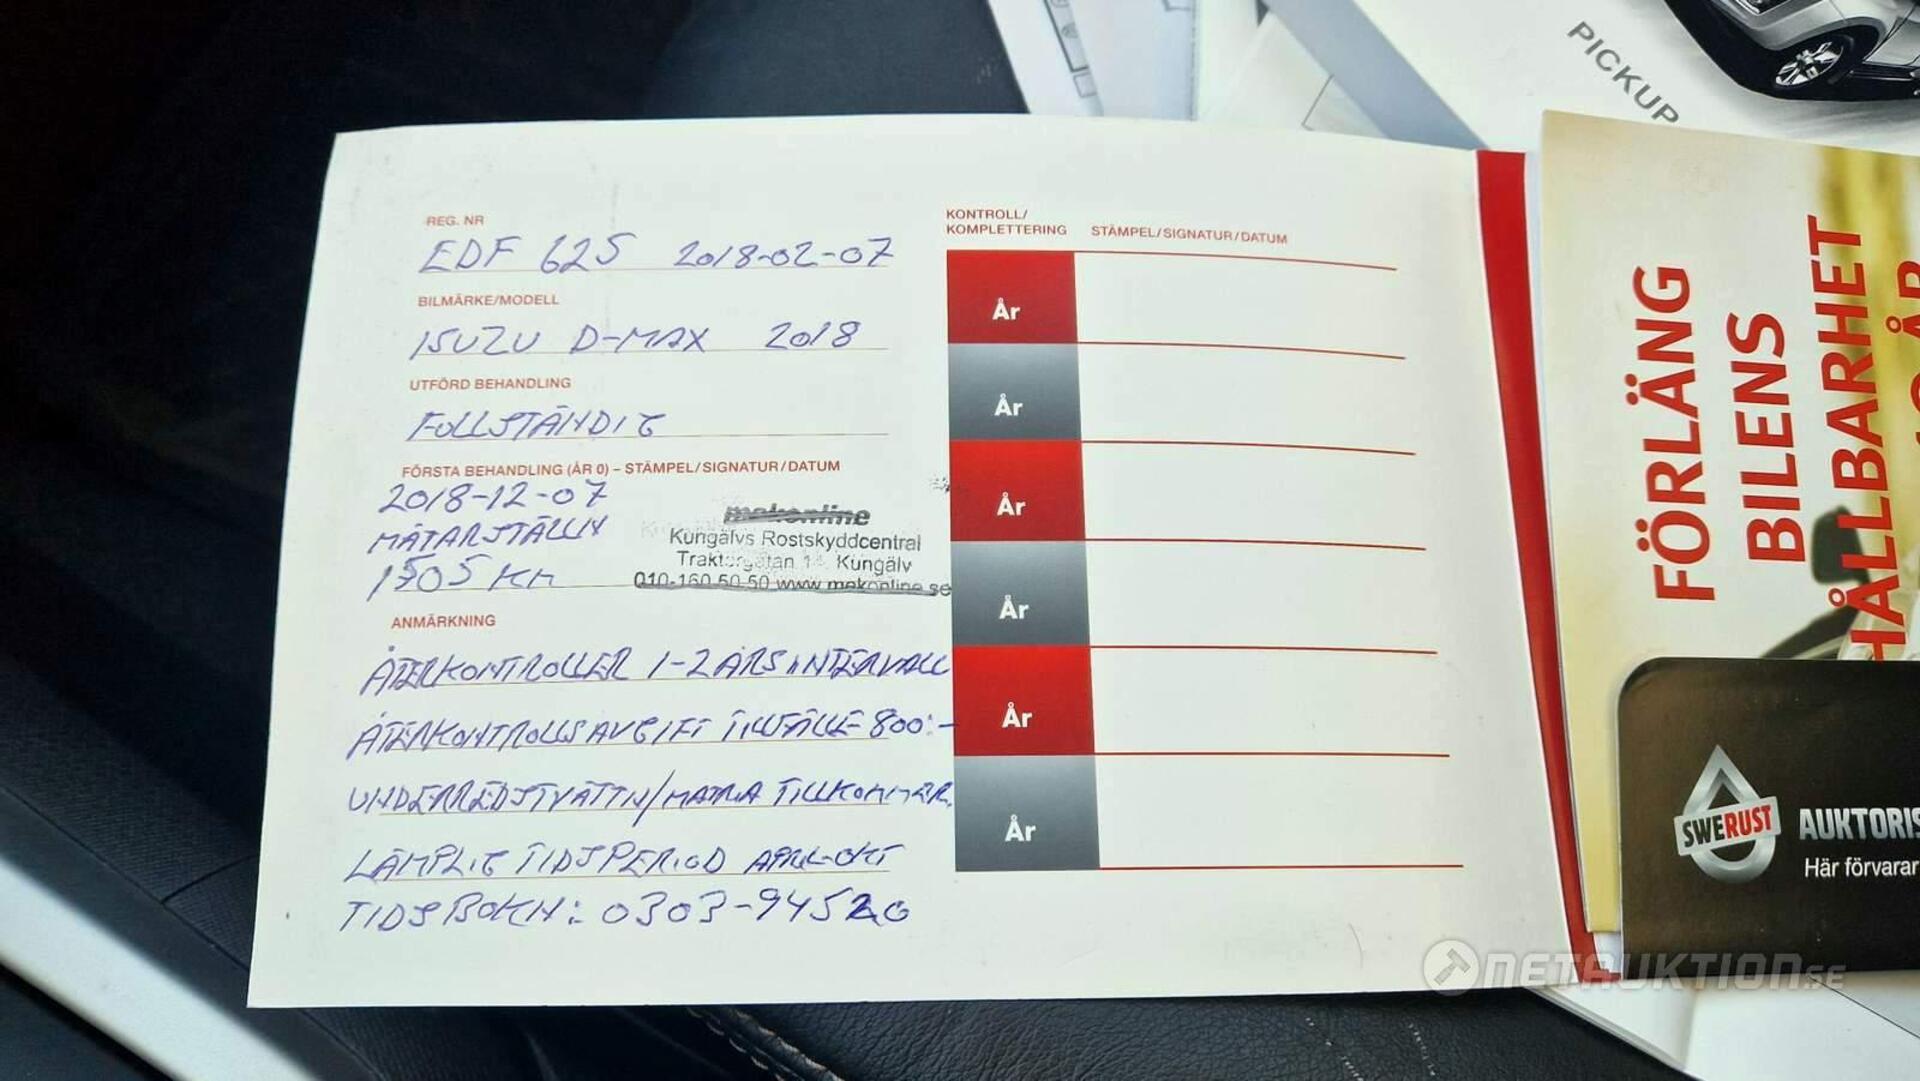 REG. NR
EDF 625 2018-02-07
BILMÄRKE/MODELL
ISUZU D-MAX 2018
UTFÖRD BEHANDLING
FULLSTÄNDIG
FÖRSTA BEHANDLING (ÅR 0) – STÄMPEL/SIGNATUR/DATUM
2018-12-07
MÄTARSTÄLLN
1505 KM
makonline
Kungälvs Rostskyddcentral
Traktorgatan 1 Kungälv
010-160 50 50 www.makonline.se
ANMÄRKNING
ÅTERKONTROLLER 1-2 ÅRS INTERVALL
ÅTERKONTROLLSAVGIFT TILLFÄLLE 800:-
UNDERREDSTVÄTTN/MATRA TILLKOMMER.
LÄMPLIG TIDSPERIOD APRIL-OKT
TIDSBOKN: 0303-94520
KONTROLL/
KOMPLETTERING
STÄMPEL/SIGNATUR/DATUM
År
År
År
År
År
År
PICKUP
FÖRLÄNG
BILENS
HÅLLBARHET
SWERUST
AUKTORIS
Här förvarar
NETAUKTION.SE